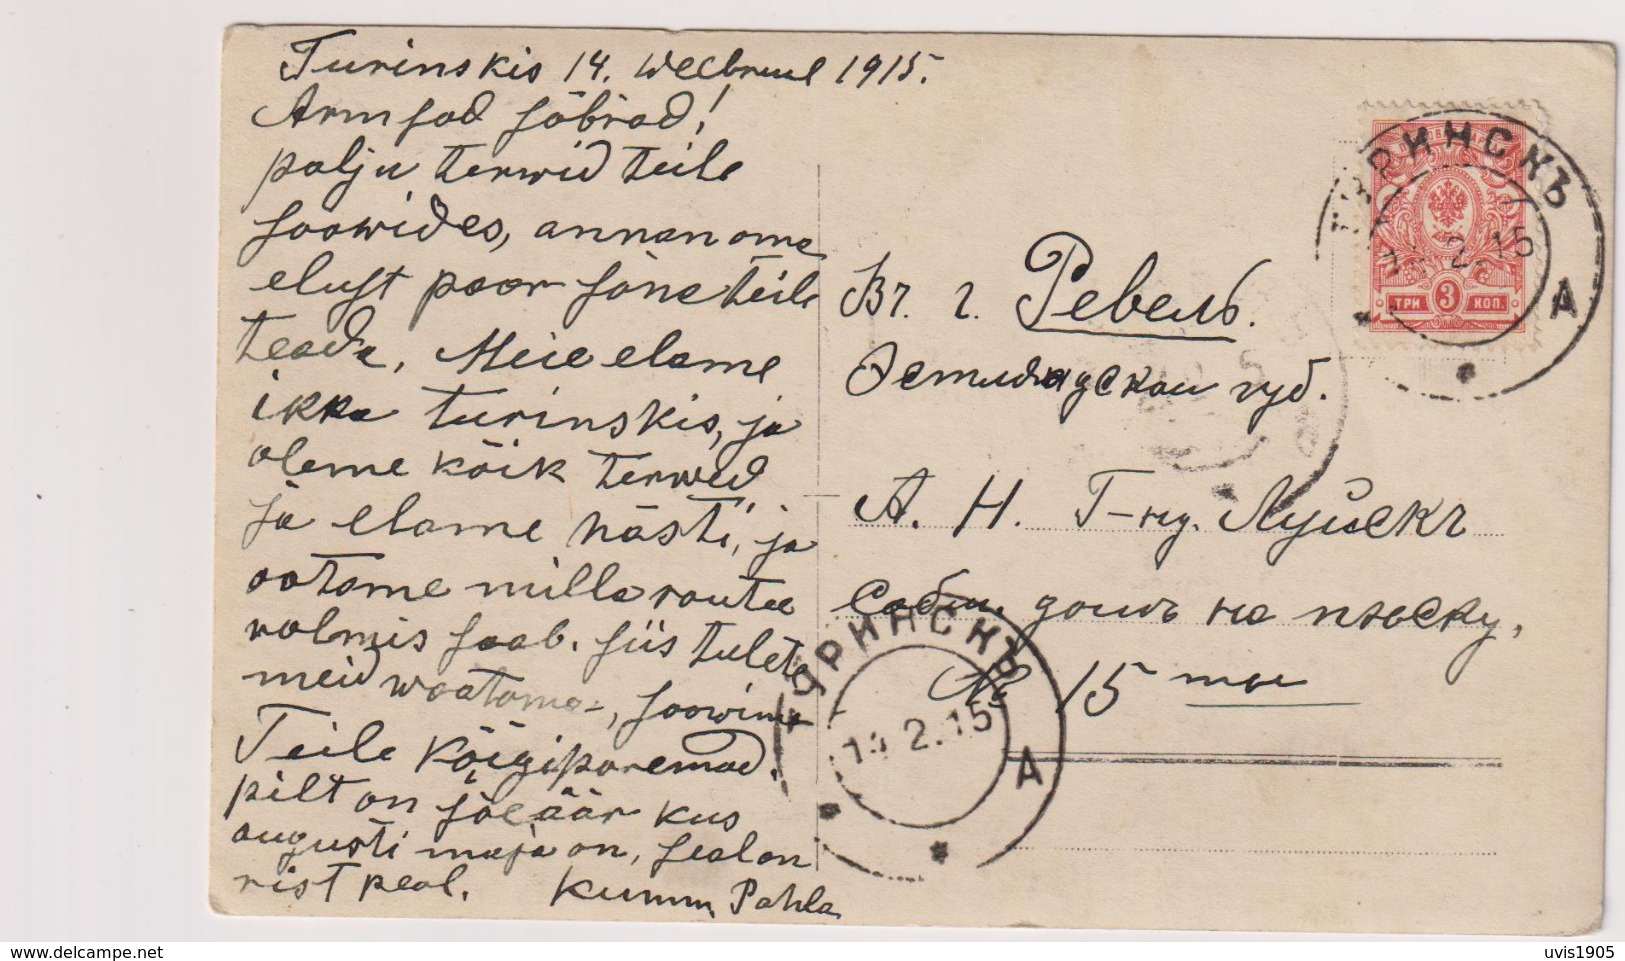 Turinskis 14. weebruul 1915.
Armsad sõbrad!
palju terwid teile
soowides, annan oma
elust paar sõna teile
teada, Meie elame
ikka turinskis, ja
oleme kõik terwed
ja elame hästi, ja
ootame milla rautee
walmis saab. siis tulete
meid waatama, soowime
Teile kõigiparemad.
pilt on jõe äär kus
augusti maja on, seal on
rist peal. Kumm, Pahla
Въ. г. Ревель.
Эстляндскои губ.
А. Н. Г-ну. Луйскъ
Собст. домъ на пѣску,
№ 15 ты
ТУРИНСКЪ
2.15
А
ТРИ 3 КОП.
ТУРИНСКЪ
2.15
А
uvis1905
www.delcampe.net